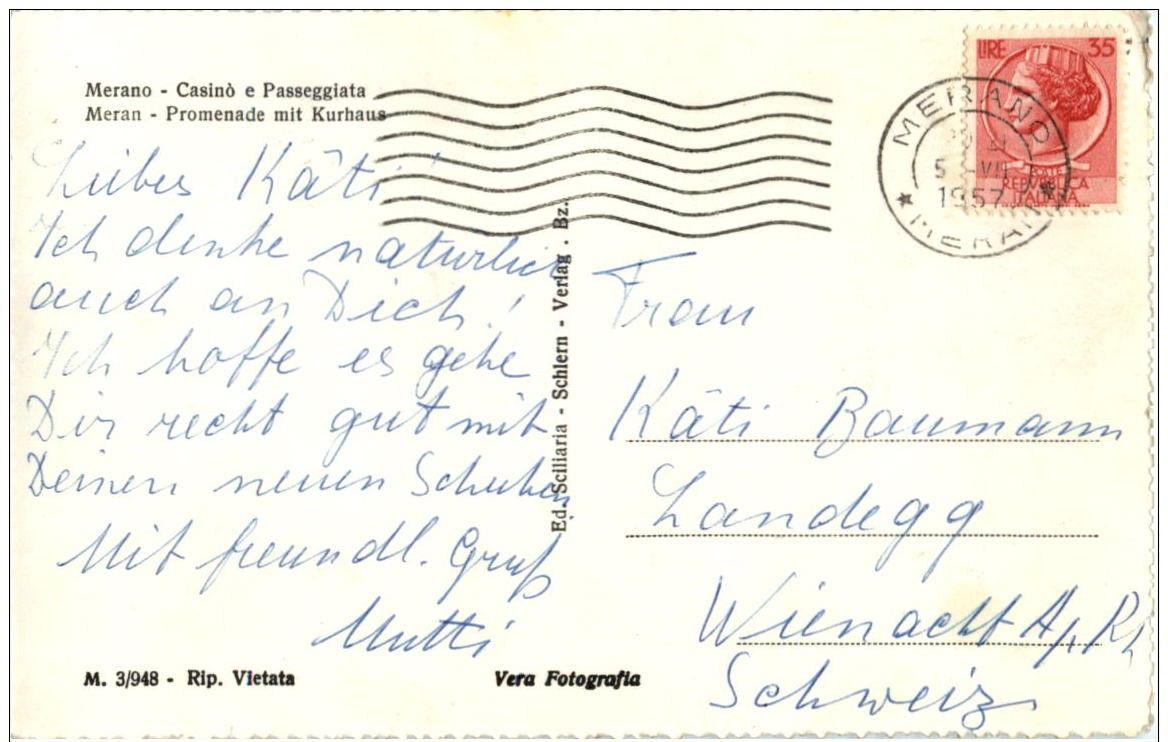 Merano - Casinò e Passeggiata
Meran - Promenade mit Kurhaus
Liebes Käti
Ich denke natürlich
auch an Dich!
Ich hoffe es gehe
Dir recht gut mit
Deinen neuen Schuhen
Mit freundl. Gruß
Mutti
M. 3/948 - Rip. Vietata
Vera Fotografia
Ed. Sciliaria - Schlern - Verlag . Bz.
LIRE 35
REPVBBLICA
ITALIANA
MERANO
5 -VII
1957
MERAN
Frau
Käti Baumann
Landegg
Wienacht A/Rh
Schweiz